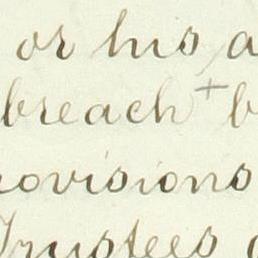 or his a
breach + b
rovisions
Trustees